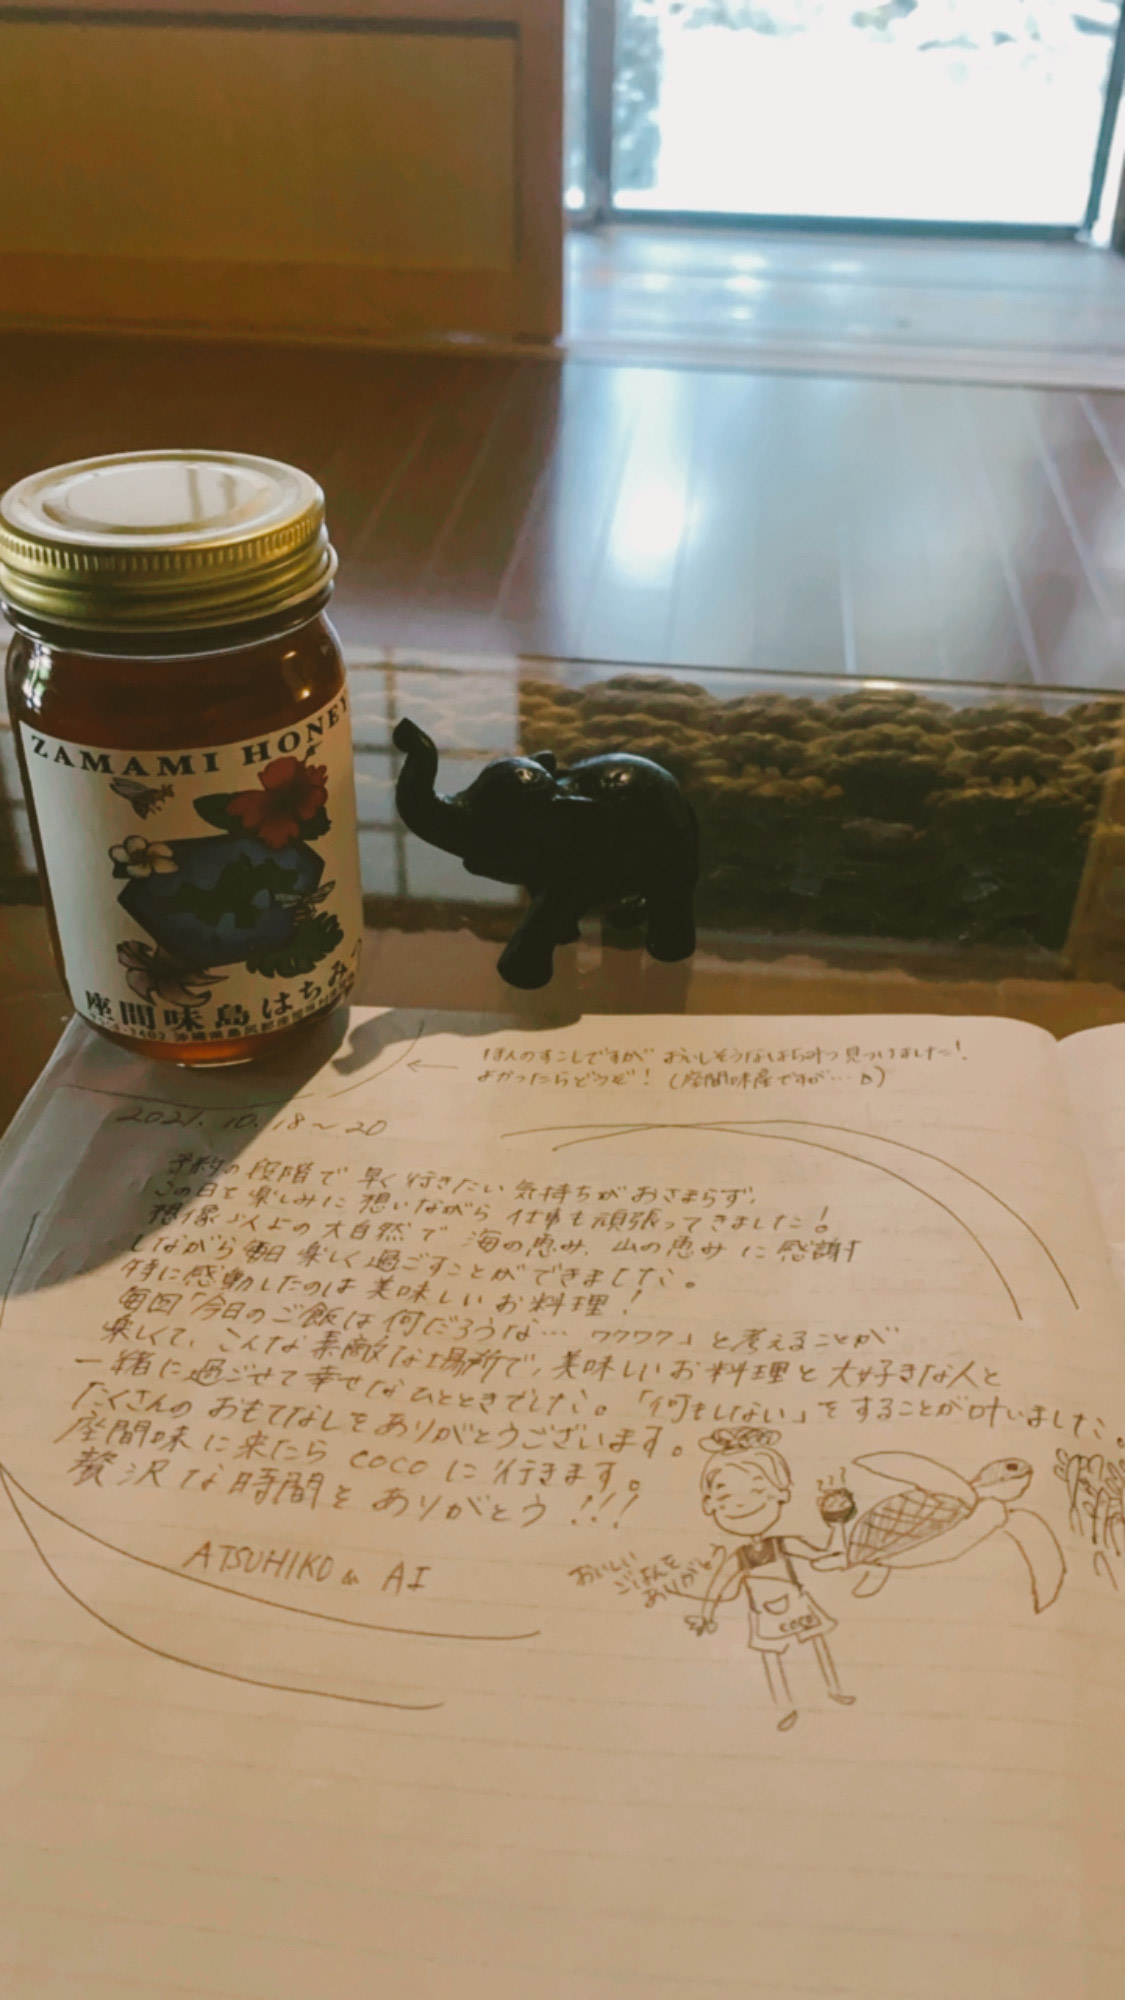 ZAMAMI HONEY
座間味島はちみつ
ほんのすこしですが おいしそうなはちみつ見つけました!
よかったらどうぞ! (座間味産ですが…
2021.10.18~20
予約の段階で 早く行きたい 気持ちがおさまらず、
この日を楽しみに 想いながら 仕事も頑張ってきました!
想像以上の大自然で 海の恵み、山の恵みに感謝
しながら毎日 楽しく過ごすことができました。
特に感動したのは 美味しいお料理!
毎回「今日のご飯は何だろうな… ワクワク」と考えることが
楽しくて、こんな素敵な場所で、美味しいお料理と大好きな人と
一緒に過ごせて幸せなひとときでした。「何もしない」をすることが叶いました。
たくさんの おもてなしをありがとうございます。
座間味に来たら cocoに行きます。
贅沢な時間をありがとう!!!
ATSUHIKO & AI
おいしい
ごはんを
ありがとう
coco